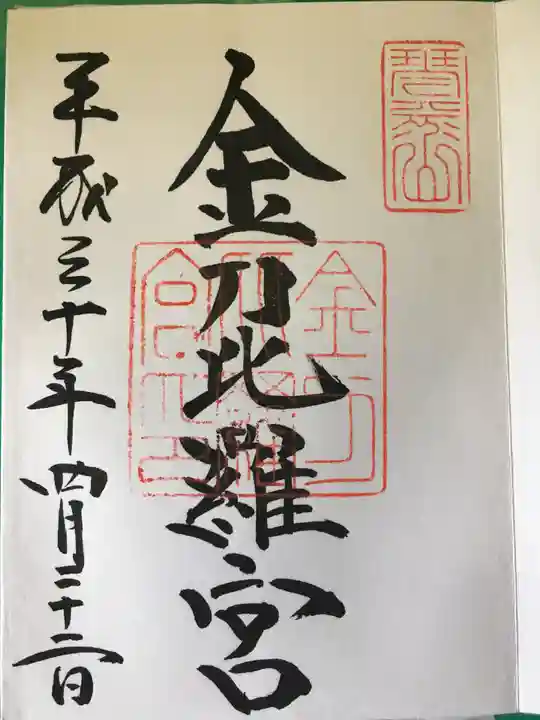 琴平山
金刀比羅宮
金刀比羅宮之印
平成三十年四月二十二日